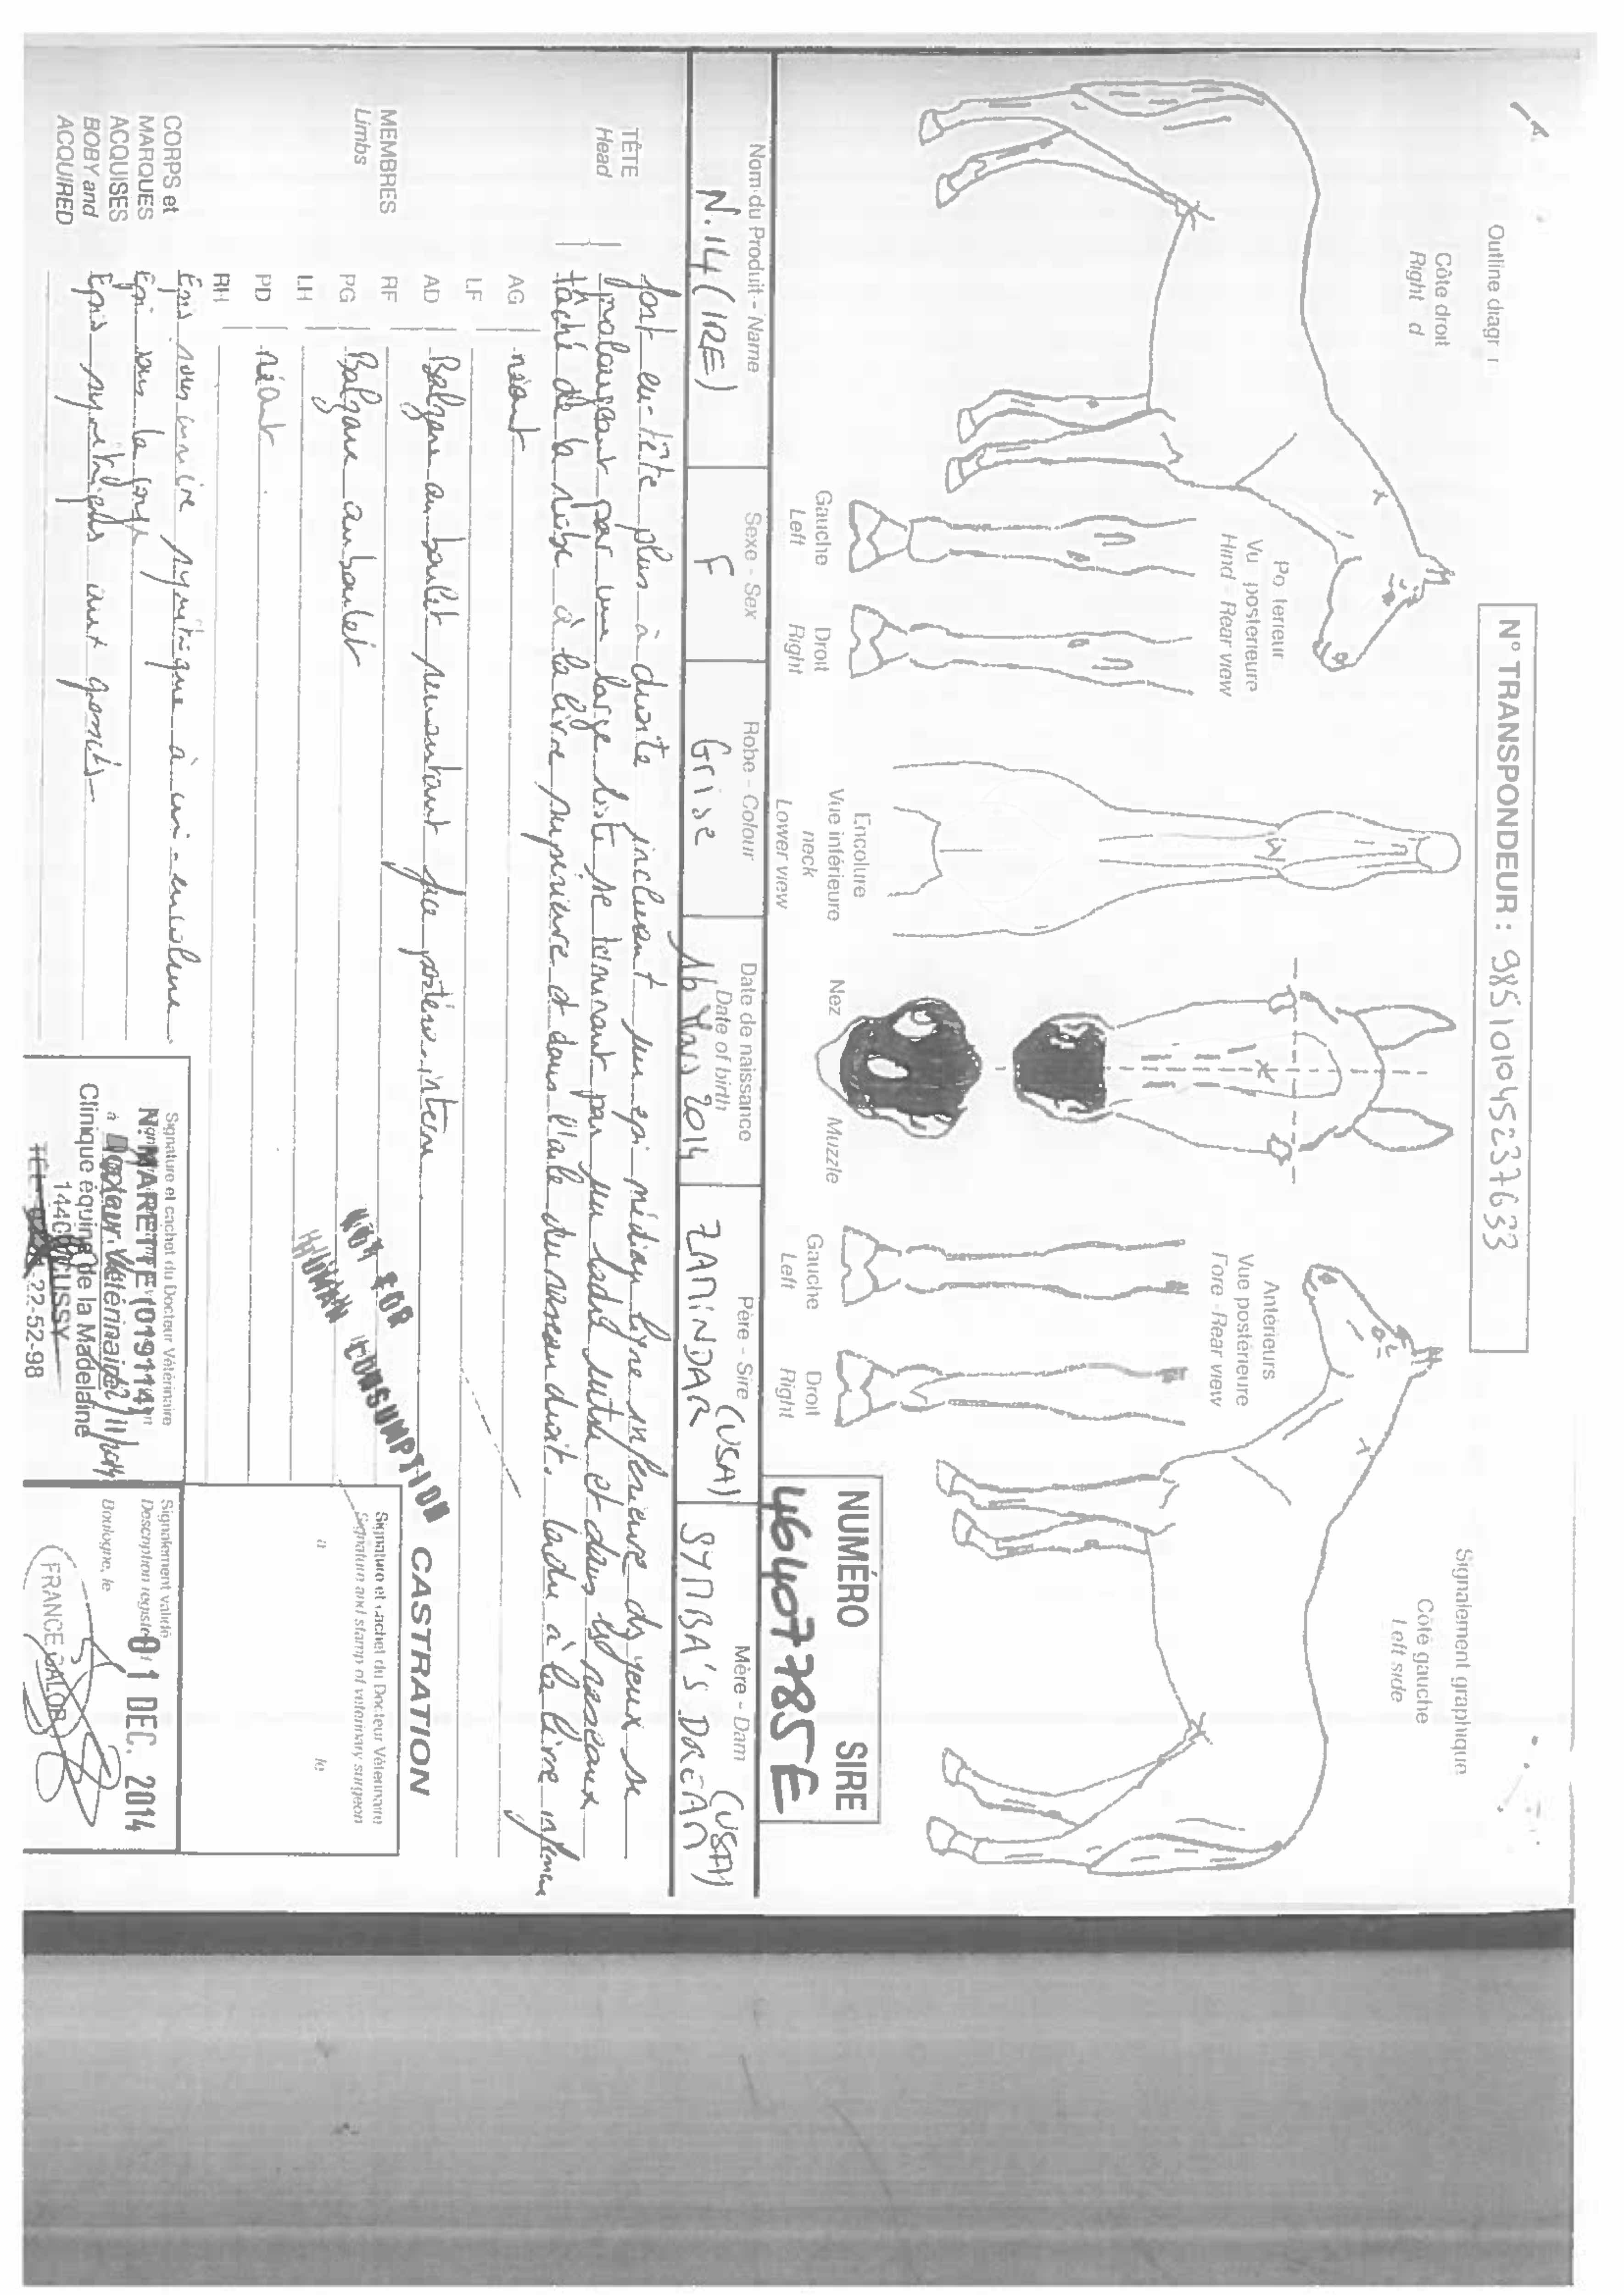 Outline diagr
Côte droit
Right d
N° TRANSPONDEUR : 985101045237633
Signalement graphique
Côté gauche
Left side
Po terieur
Vu posterieure
Hind - Rear view
Gauche
Left
Droit
Right
Encolure
Vue inférieure
neck
Lower view
Nez
Muzzle
Antérieurs
Vue postérieure
Fore - Rear view
Gauche
Left
Droit
Right
NUMÉRO SIRE
46407785E
Nom du Produit - Name
N.14 (IRE)
Sexe - Sex
F
Robe - Colour
Grise
Date de naissance
Date of birth
16 Mars 2014
Père - Sire
ZAMINDAR (USA)
Mère - Dam
SYMBA'S DREAM (USA)
TÊTE
Head
fort en-tête plus à droite incluant un épi médian ligne inférieure des yeux se
prolongeant par une large liste se terminant par un ladre entre et dans les naseaux
tâché de la robe à la lèvre supérieure et dans l'aile du naseau droit. ladre à la lèvre inférieure
MEMBRES
Limbs
AG néant
LF
AD Balzane au boulet remontant face postéro-interne
RF
PG Balzane au boulet
LH
PD néant
RH
CORPS et
MARQUES
ACQUISES
BOBY and
ACQUIRED
Epis sous crinière symétrique à mi-encolure
Epi sous la gorge
Epis symétriques aux grassets
NOT FOR
HUMAN CONSUMPTION
CASTRATION
Signature et cachet du Docteur Vétérinaire
Signature and stamp of veterinary surgeon
a le
Signature et cachet du Docteur Vétérinaire
N. MARETTE (019114)
Docteur Vétérinaire
Clinique équine de la Madeleine
14400 CUSSY
22-52-98
Signalement validé
Description registe
01 DEC. 2014
Boulogne, le
FRANCE GALOP